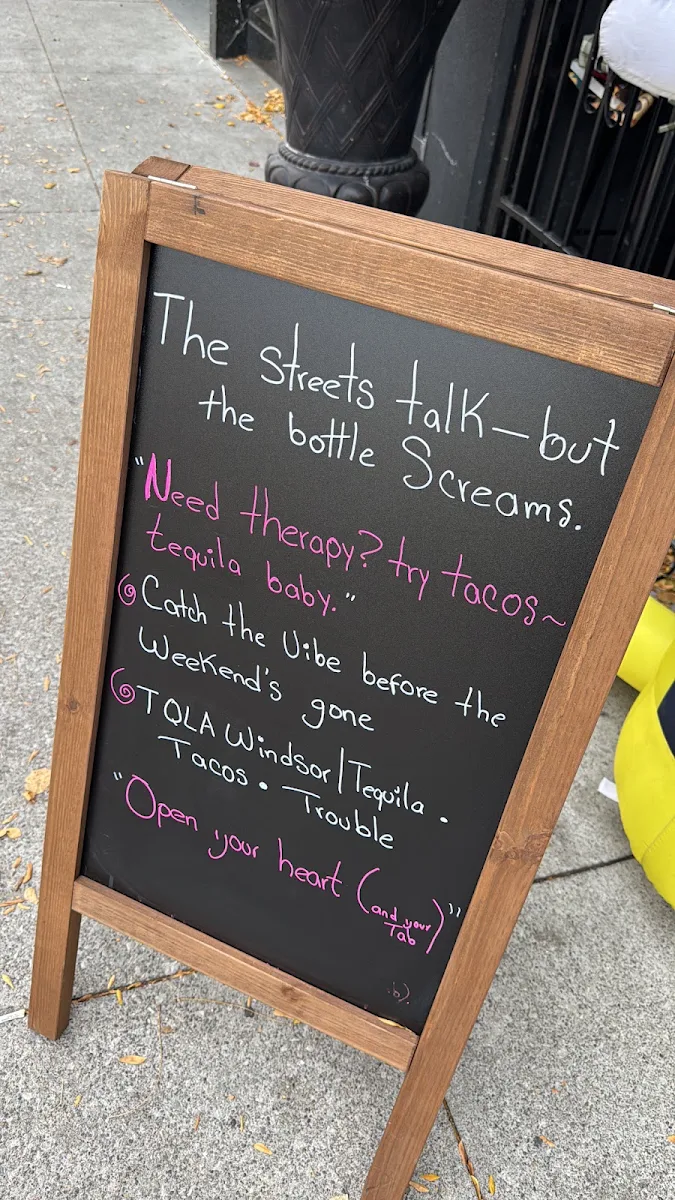 The streets talk—but
the bottle Screams.
"Need therapy? try tacos~
tequila baby."
Catch the Vibe before the
Weekend's gone
TQLA Windsor|Tequila •
Tacos • Trouble
"Open your heart (and your
Tab)"